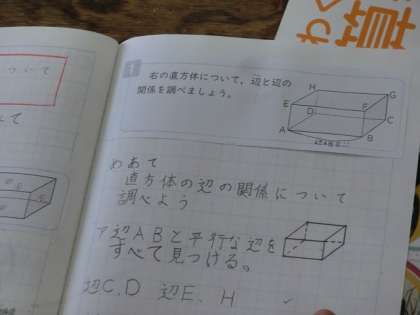 ついて
て
1
右の直方体について、辺と辺の
関係を調べましょう。
H
G
E
F
D
C
A
B
めあて
直方体の辺の関係について
調べよう
ア辺ABと平行な辺を
すべて見つける。
辺C.D 辺E. H
わく